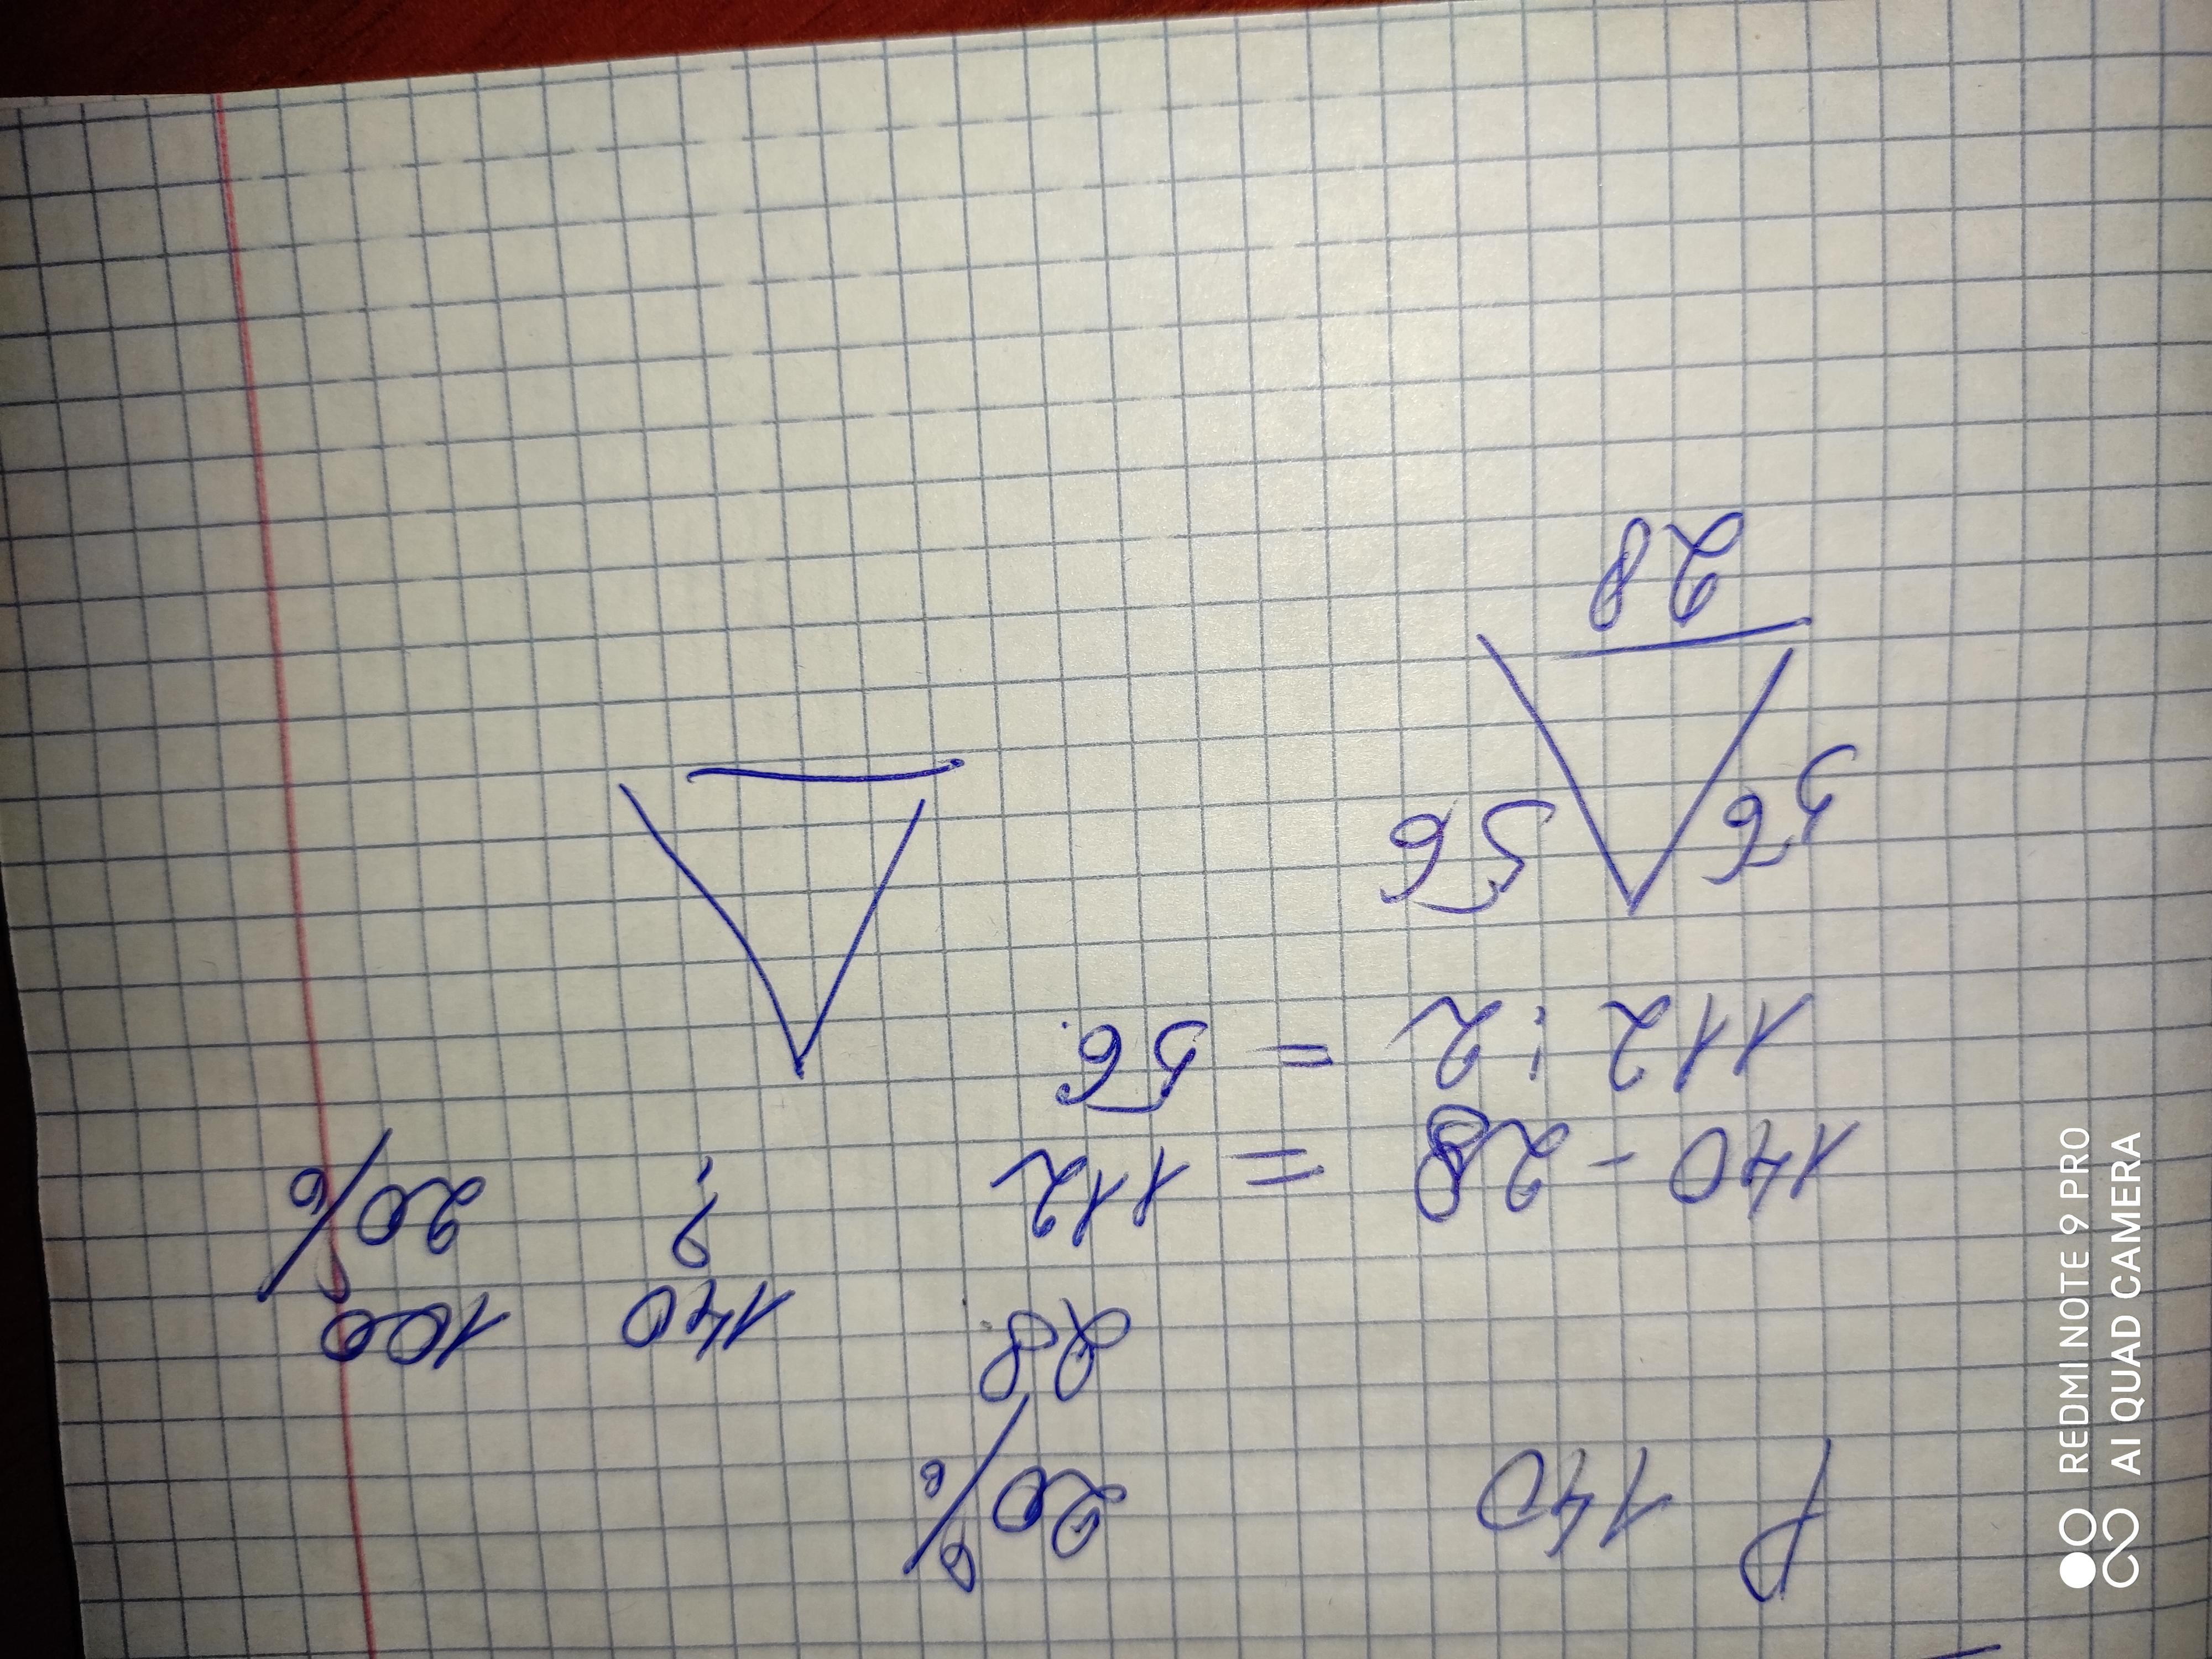 P 140 20%
28 140 100
140 - 28 = 112 ? 20%
112 : 2 = 56
56 56
28
REDMI NOTE 9 PRO
AI QUAD CAMERA